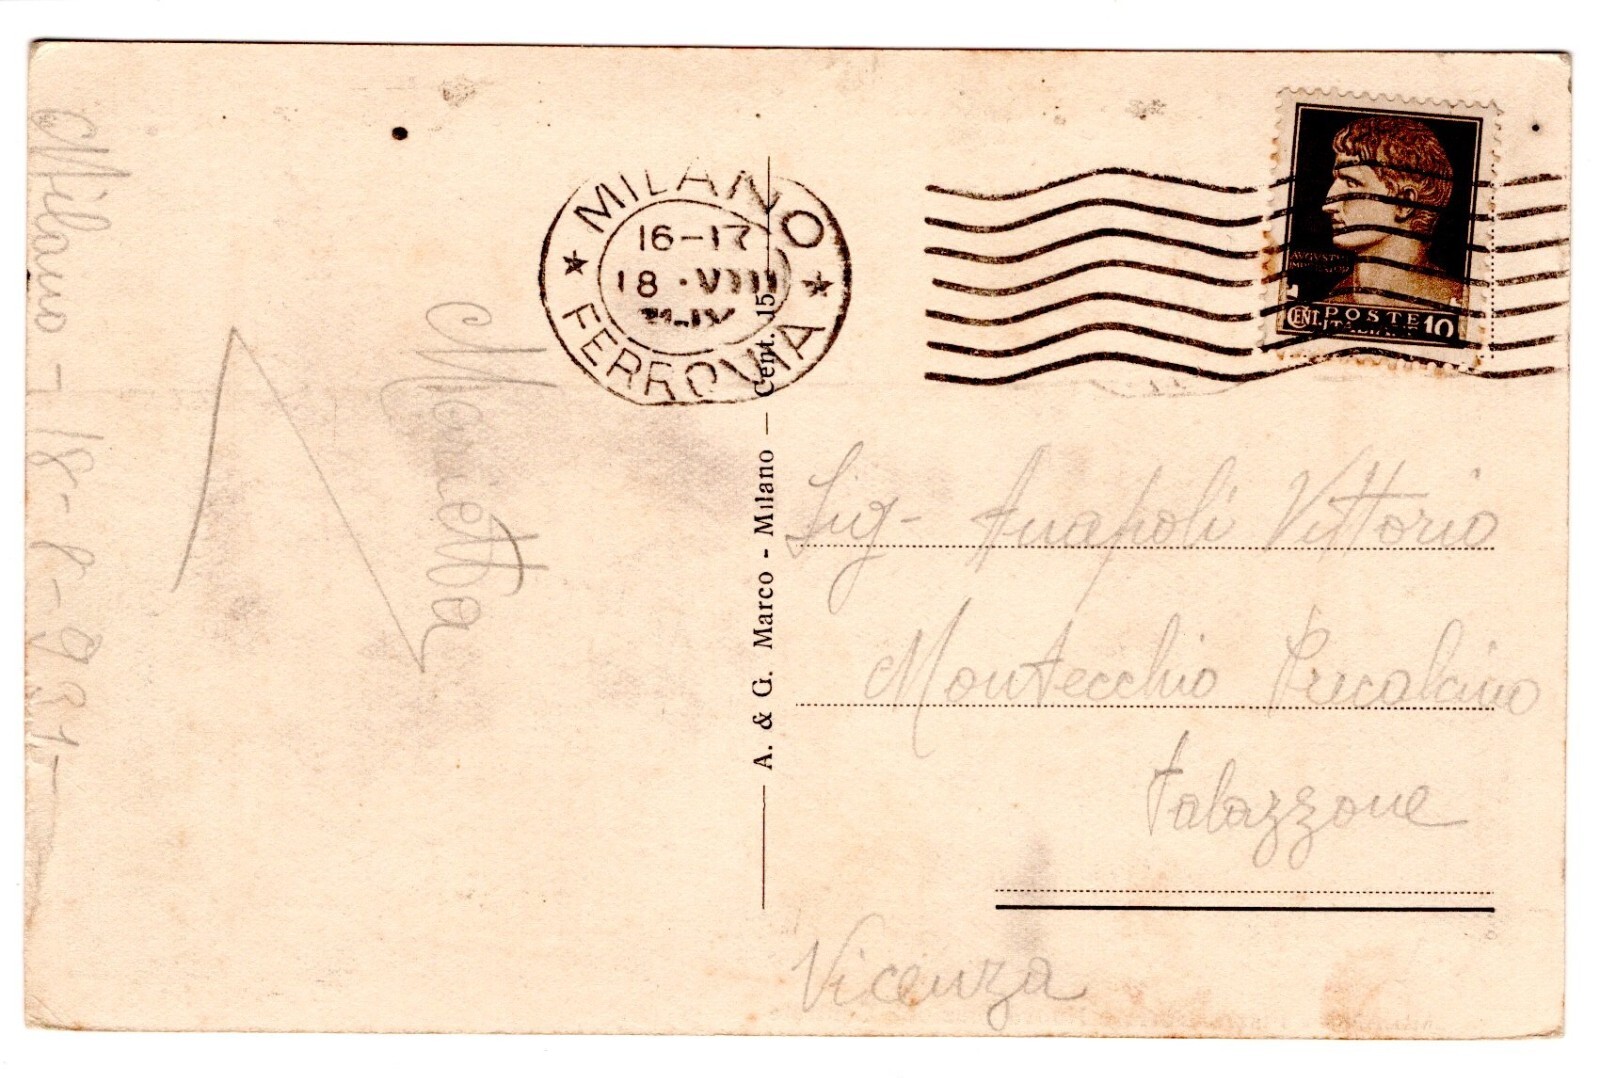 Milano - 18-8-931-
Marietta
MILANO
16-17
18 · VIII
FERROVIA
A. & G. Marco - Milano — Cent. 15
AVGVSTO
CENT. POSTE 10
ITALIANE
Sig- Anapoli Vittorio
Montecchio Precalcino
Palazzone
Vicenza